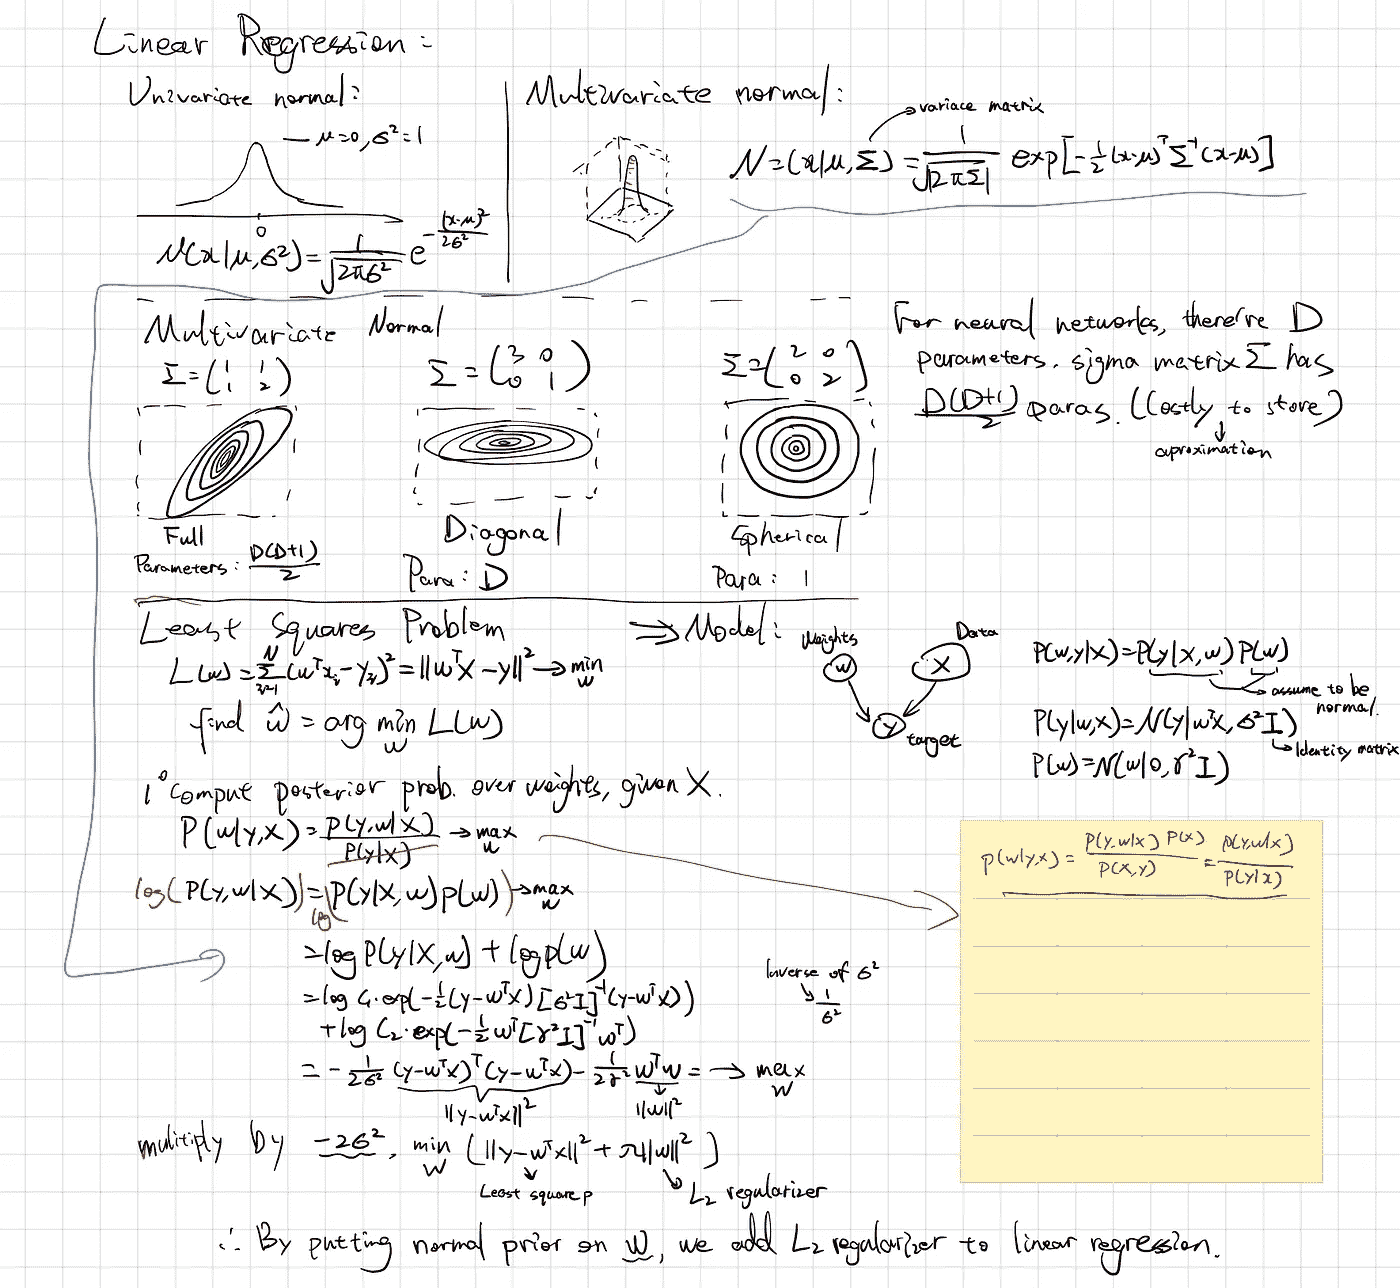 Linear Regression:
Univariate normal:
μ=0, σ²=1
0
N(x|μ,σ²) = 1/√(2πσ²) e^(-(x-μ)²/2σ²)
Multivariate normal:
variace matrix
N=(x|μ,Σ) = 1/√|2πΣ| exp[-½(x-μ)ᵀΣ⁻¹(x-μ)]
Multivariate Normal
Σ=(1 1
1 2)
Full
Parameters: D(D+1)/2
Σ=(3 0
0 1)
Diagonal
Para: D
Σ=(2 0
0 2)
Spherical
Para: 1
For neural networks, there're D
parameters. sigma matrix Σ has
D(D+1)/2 paras. (Costly to store)
aproximation
Least Squares Problem
L(w) = Σᵢ₌₁ᴺ (wᵀxᵢ-yᵢ)² = ||wᵀX-y||² → min w
find ŵ = arg min w L(w)
⇒ Model:
Weights
w
Data
X
y
target
P(w,y|X)=P(y|X,w) P(w)
assume to be
normal.
P(y|w,X)=N(y|wᵀX, σ²I)
Identity matrix
P(w)=N(w|0,γ²I)
1° comput posterior prob. over weights, given X.
P(w|y,X) = P(y,w|X)/P(y|X) → max w
log(P(y,w|X)) = log(P(y|X,w)p(w)) → max w
= log P(y|X,w) + log p(w)
= log C₁·exp(-½(y-wᵀX)[σ²I]⁻¹(y-wᵀX))
+ log C₂·exp(-½wᵀ[γ²I]⁻¹wᵀ)
= -1/2σ² (y-wᵀX)ᵀ(y-wᵀX) - 1/2γ² wᵀw = → max w
||y-wᵀX||²
||w||²
Inverse of σ²
1/σ²
p(w|y,x) = P(y,w|x) P(x)/P(x,y) = p(y,w|x)/P(y|x)
mulitiply by -2σ², min w (||y-wᵀx||² + λ||w||²)
Least square p
L₂ regularizer
∴ By putting normal prior on w, we add L₂ regularizer to linear regression.